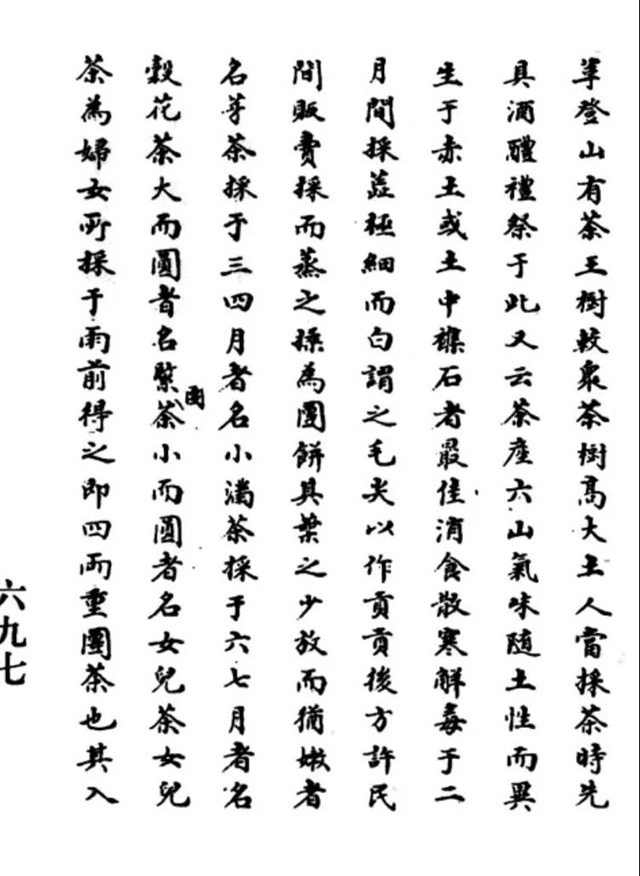 革登山有茶王樹較衆茶樹高大土人當採茶時先
具酒醴禮祭于此又云茶產六山氣味隨土性而異
生于赤土或土中雜石者最佳消食散寒解毒于二
月間採蕋極細而白謂之毛尖以作貢貢後方許民
間販賣採而蒸之揉為團餅其葉之少放而猶嫩者
名芽茶採于三四月者名小滿茶採于六七月者名
穀花茶大而圓者名緊團茶小而圓者名女兒茶女兒
茶為婦女所採于雨前得之即四兩重團茶也其入
六九七